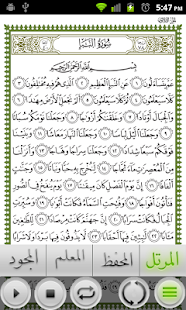 5:47 PM
سُورَةُ النَّبَإِ
بِسْمِ اللَّهِ الرَّحْمَٰنِ الرَّحِيمِ
عَمَّ يَتَسَاءَلُونَ ١ عَنِ النَّبَإِ الْعَظِيمِ ٢ الَّذِي هُمْ فِيهِ مُخْتَلِفُونَ ٣
كَلَّا سَيَعْلَمُونَ ٤ ثُمَّ كَلَّا سَيَعْلَمُونَ ٥ أَلَمْ نَجْعَلِ الْأَرْضَ مِهَادًا ٦
وَالْجِبَالَ أَوْتَادًا ٧ وَخَلَقْنَاكُمْ أَزْوَاجًا ٨ وَجَعَلْنَا نَوْمَكُمْ
سُبَاتًا ٩ وَجَعَلْنَا اللَّيْلَ لِبَاسًا ١٠ وَجَعَلْنَا النَّهَارَ مَعَاشًا ١١ وَبَنَيْنَا
فَوْقَكُمْ سَبْعًا شِدَادًا ١٢ وَجَعَلْنَا سِرَاجًا وَهَّاجًا ١٣ وَأَنْزَلْنَا
مِنَ الْمُعْصِرَاتِ مَاءً ثَجَّاجًا ١٤ لِنُخْرِجَ بِهِ حَبًّا وَنَبَاتًا ١٥ وَجَنَّاتٍ أَلْفَافًا ١٦
إِنَّ يَوْمَ الْفَصْلِ كَانَ مِيقَاتًا ١٧ يَوْمَ يُنْفَخُ فِي الصُّورِ فَتَأْتُونَ
أَفْوَاجًا ١٨ وَفُتِحَتِ السَّمَاءُ فَكَانَتْ أَبْوَابًا ١٩ وَسُيِّرَتِ
الْجِبَالُ فَكَانَتْ سَرَابًا ٢٠ إِنَّ جَهَنَّمَ كَانَتْ مِرْصَادًا ٢١ لِلطَّاغِينَ مَآبًا ٢٢
لَابِثِينَ فِيهَا أَحْقَابًا ٢٣ لَا يَذُوقُونَ فِيهَا بَرْدًا وَلَا شَرَابًا ٢٤
المرتل
الحفظ
المعلم
المجود